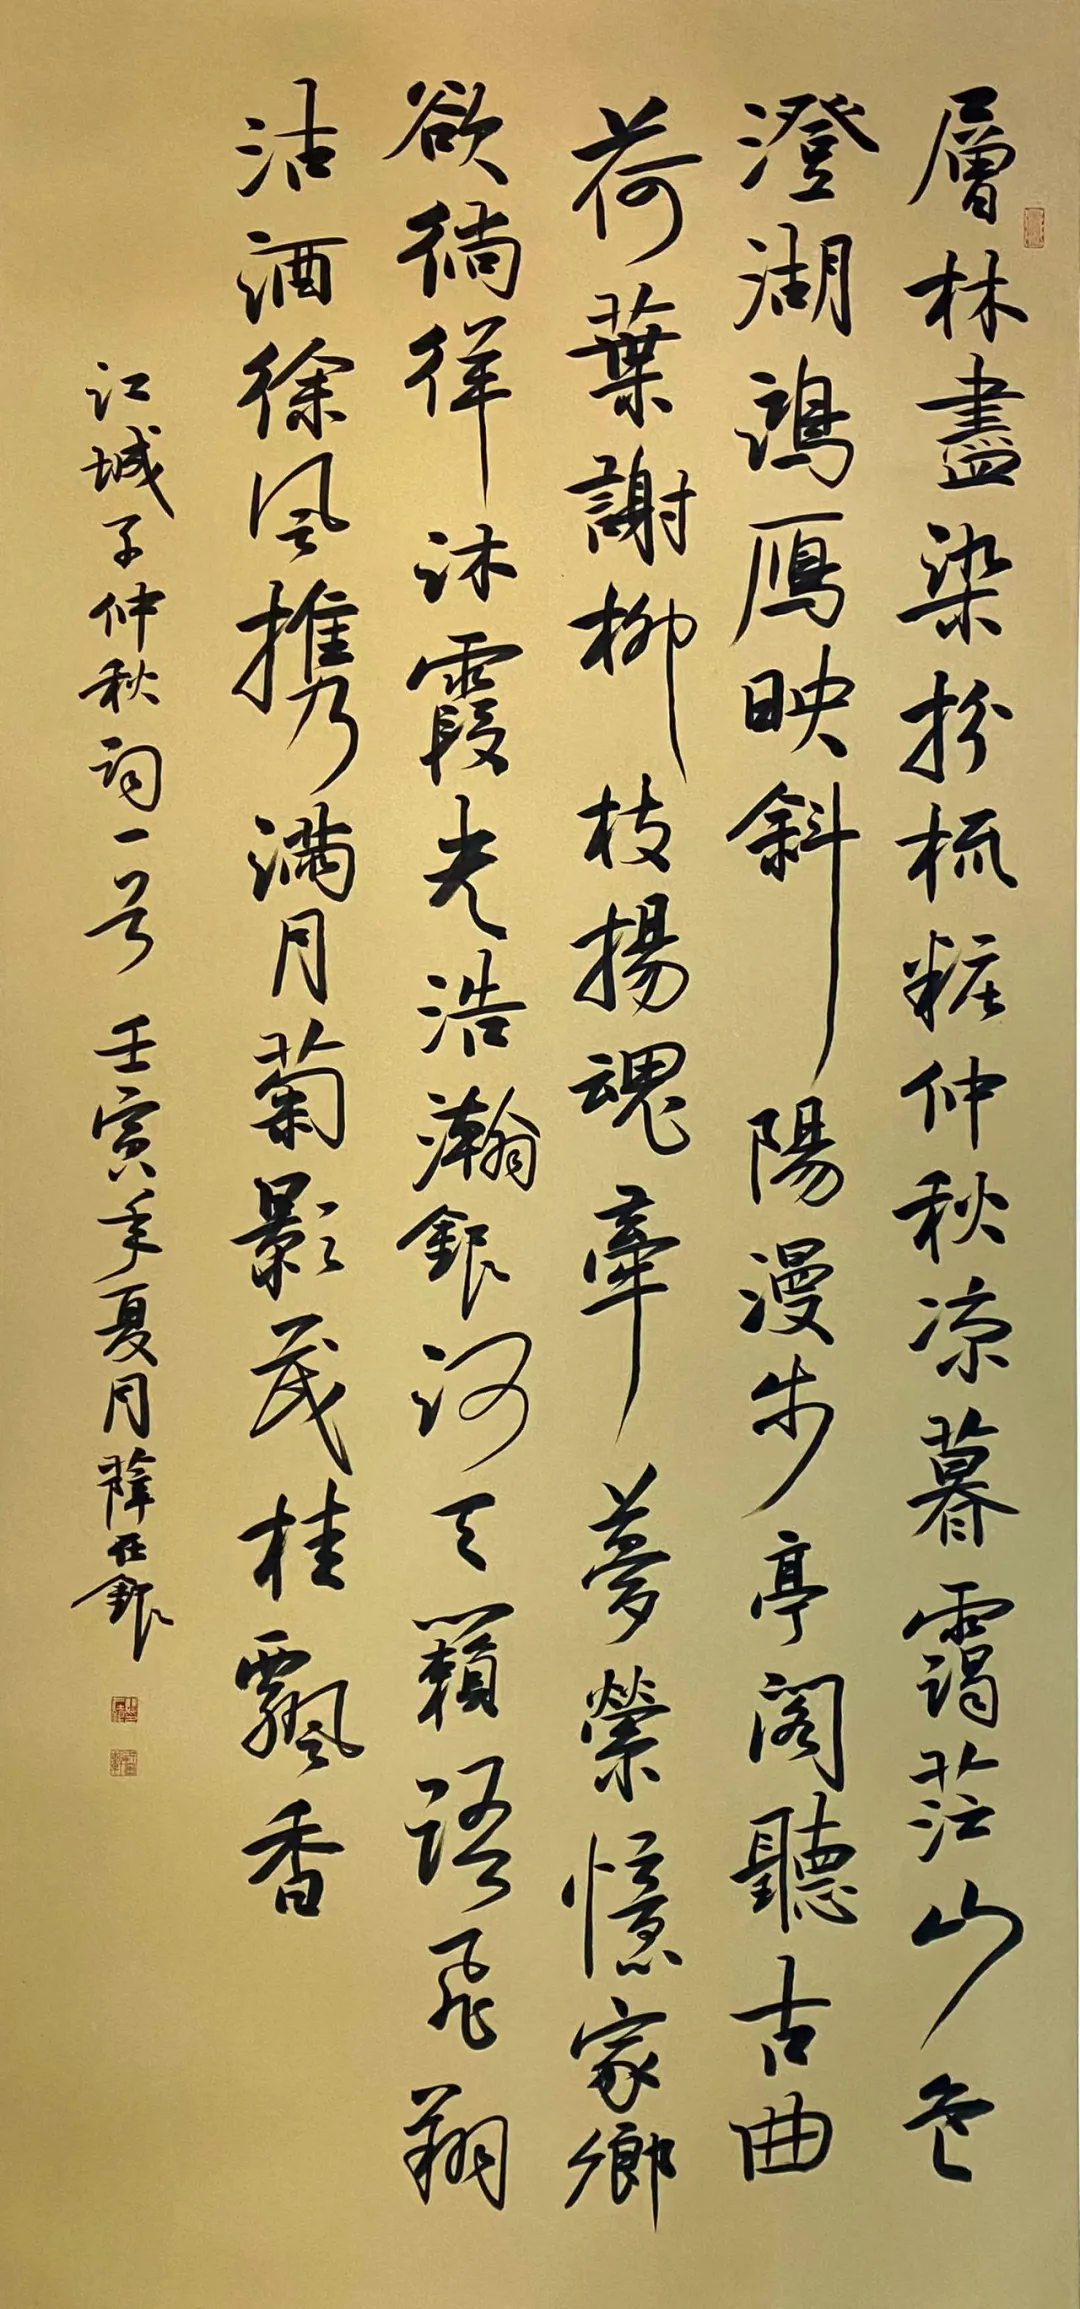 層林盡染扮梳粧仲秋涼暮靄茫山色
澄湖鴻雁映斜陽漫步亭閣聽古曲
荷葉謝柳枝揚魂牽夢縈憶家鄉
欲徜徉沐霞光浩瀚銀河天籟語飛翔
沽酒徐風攜滿月菊影茂桂飄香
江城子仲秋詞一首 壬寅年夏月薛在銀